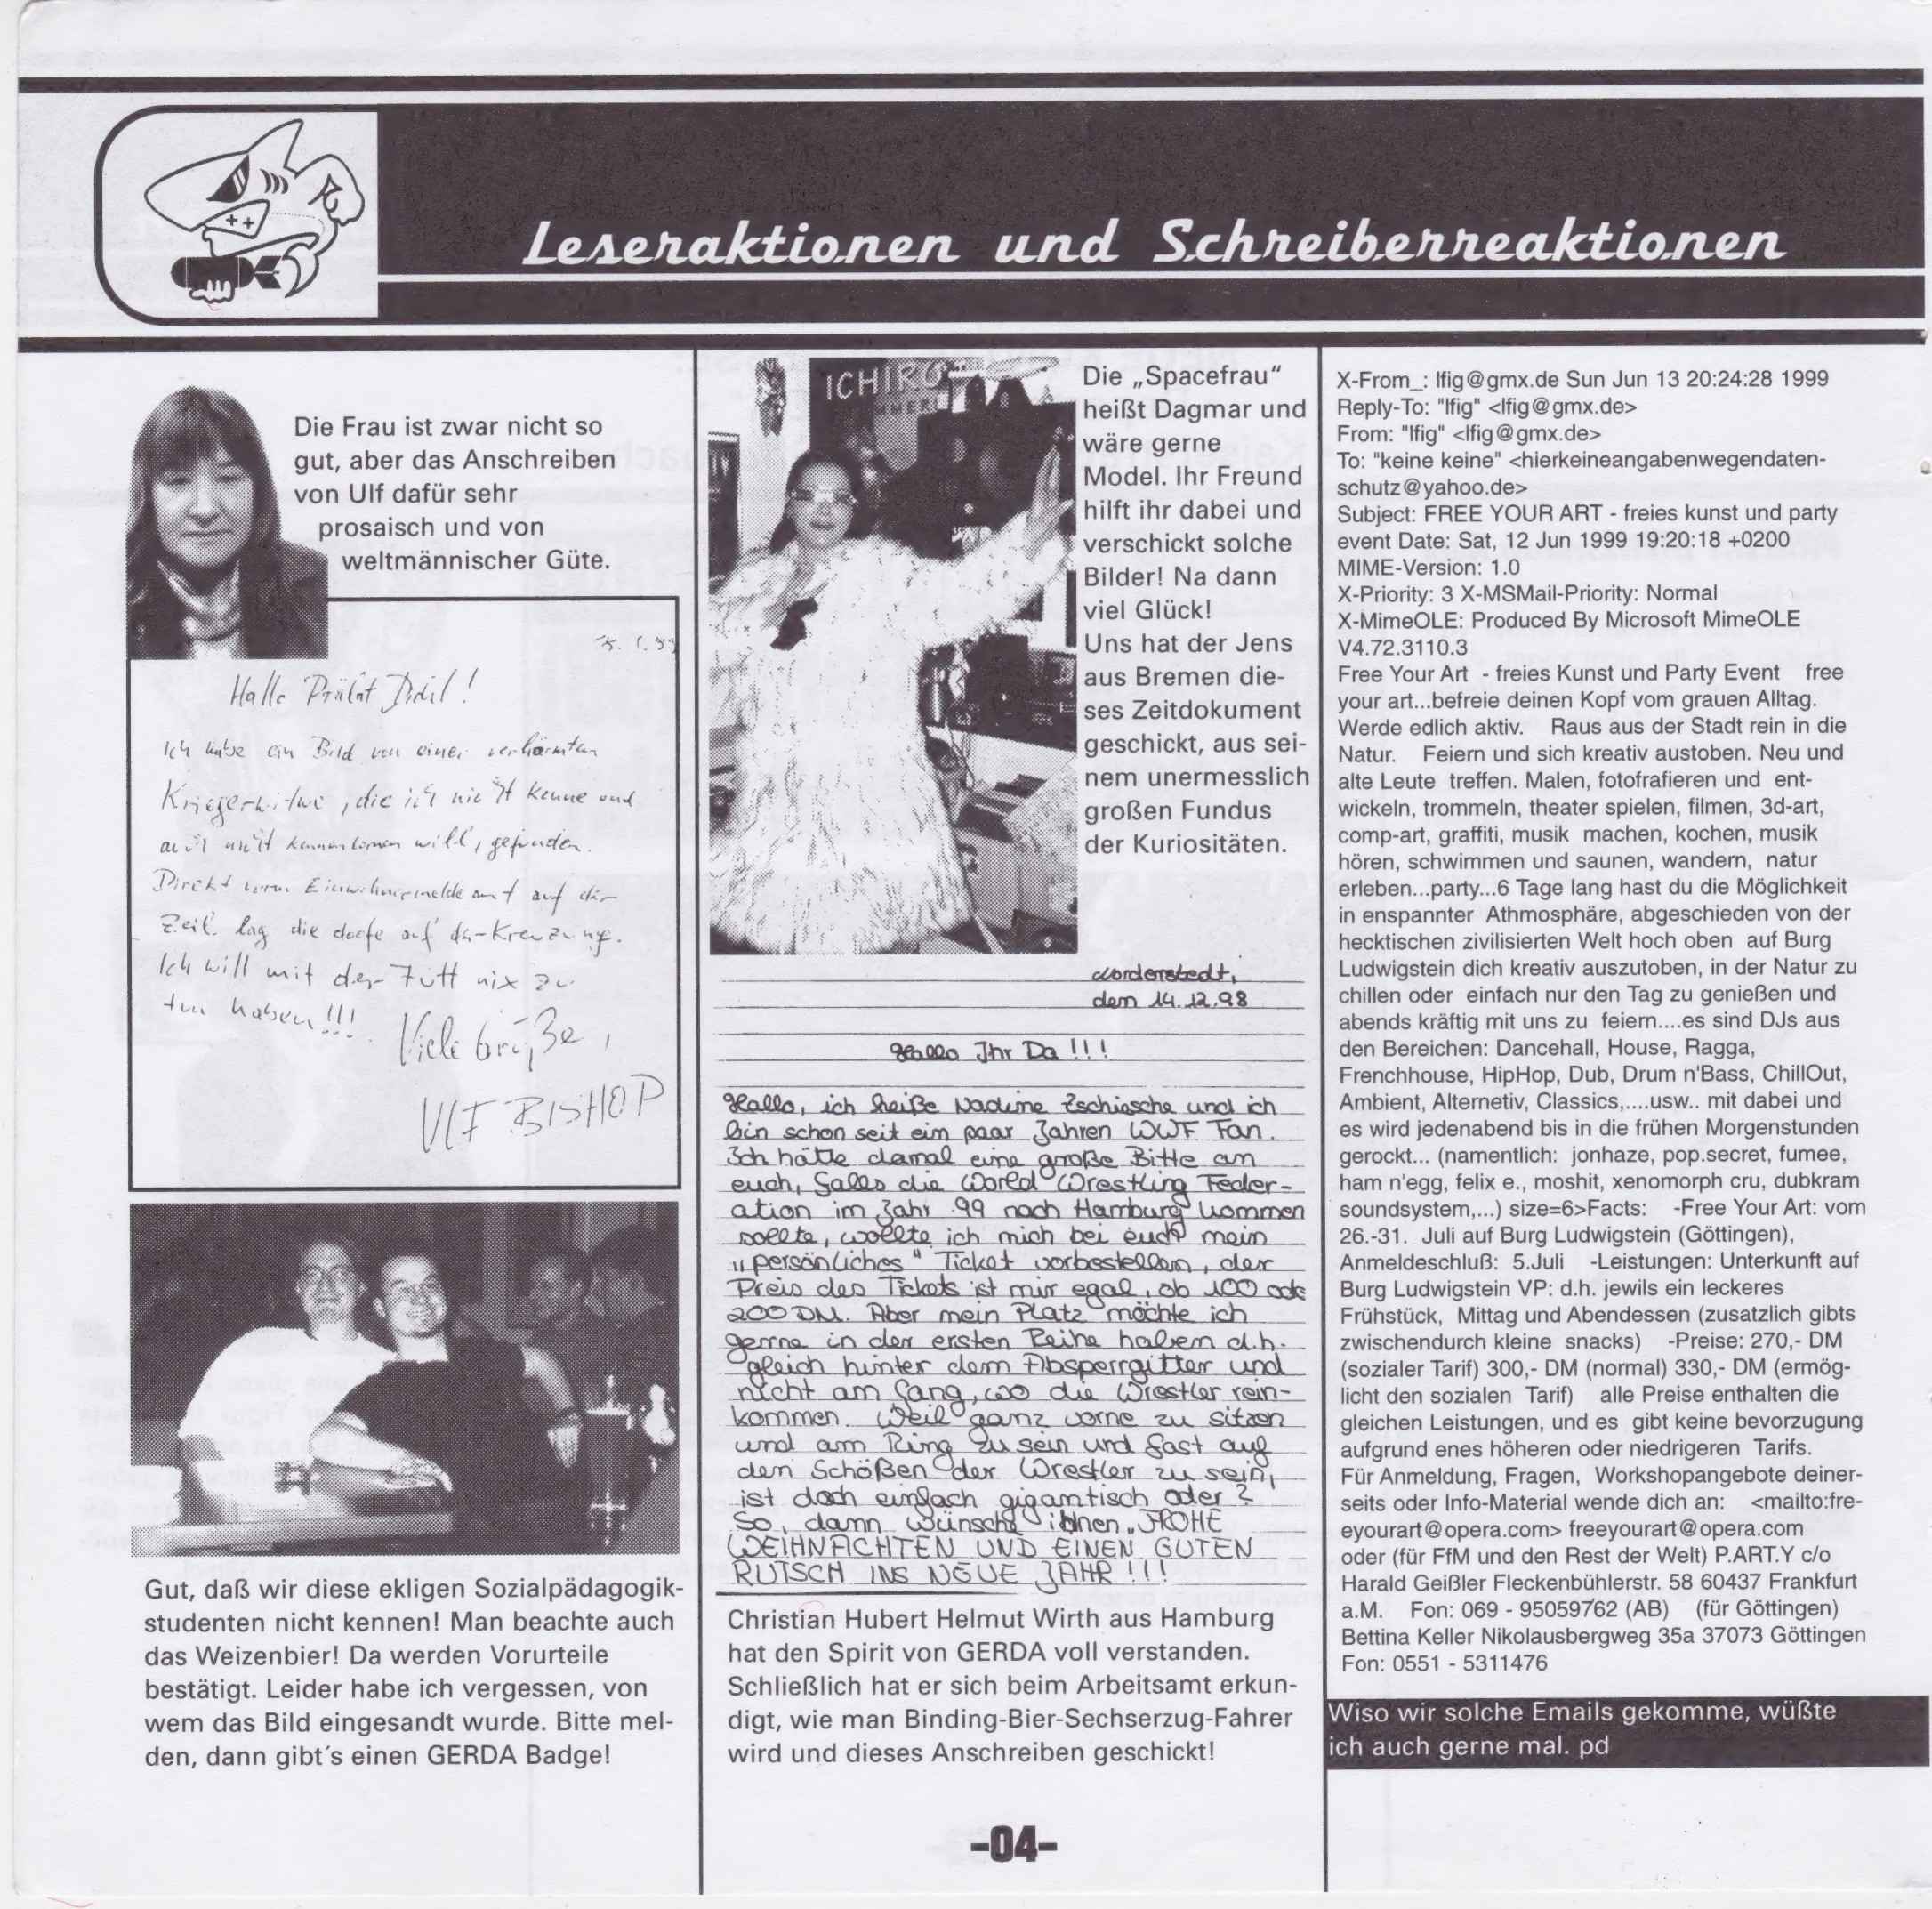 Leseraktionen und Schreiberreaktionen
Die Frau ist zwar nicht so
gut, aber das Anschreiben
von Ulf dafür sehr
prosaisch und von
weltmännischer Güte.
Hallo Prälat Didi!
Ich habe ein Bild von einer verhärmten
Kriegerwitwe, die ich nicht kenne und
auch nicht kennenlernen will, gefunden.
Direkt vorm Einwohnermeldeamt auf der
Zeil. lag die doofe auf der Kreuzung.
Ich will mit der Futt nix zu
tun haben!!!
Viele Grüße,
ULF BISHOP
Gut, daß wir diese ekligen Sozialpädagogik-
studenten nicht kennen! Man beachte auch
das Weizenbier! Da werden Vorurteile
bestätigt. Leider habe ich vergessen, von
wem das Bild eingesandt wurde. Bitte mel-
den, dann gibt´s einen GERDA Badge!
ICHIRO
Die „Spacefrau“
heißt Dagmar und
wäre gerne
Model. Ihr Freund
hilft ihr dabei und
verschickt solche
Bilder! Na dann
viel Glück!
Uns hat der Jens
aus Bremen die-
ses Zeitdokument
geschickt, aus sei-
nem unermesslich
großen Fundus
der Kuriositäten.
Norderstedt,
dem 14.12.98
Hallo Ihr Da!!!
Hallo, ich heiße Nadine Zschiesche und ich
bin schon seit ein paar Jahren WWF Fan.
Ich hätte damal eine große Bitte an
euch, falls die World Wrestling Feder-
ation im Jahr 99 nach Hamburg kommen
sollte, wollte ich mich bei euch mein
„persönliches“ Ticket vorbestellen, der
Preis des Tickets ist mir egal, ob 100 ode
200 DM. Aber mein Platz möchte ich
gerne in der ersten Reihe haben d.h.
gleich hinter dem Absperrgitter und
nicht am Gang, wo die Wrestler rein-
kommen. Weil ganz vorne zu sitzen
und am Ring zu sein und fast auf
den Schößen der Wrestler zu sein,
ist doch einfach gigantisch oder?
So, dann wünsche ihnen „FROHE
WEIHNACHTEN UND EINEN GUTEN
RUTSCH INS NEUE JAHR!!!
Christian Hubert Helmut Wirth aus Hamburg
hat den Spirit von GERDA voll verstanden.
Schließlich hat er sich beim Arbeitsamt erkun-
digt, wie man Binding-Bier-Sechserzug-Fahrer
wird und dieses Anschreiben geschickt!
X-From_: lfig@gmx.de Sun Jun 13 20:24:28 1999
Reply-To: "lfig" <lfig@gmx.de>
From: "lfig" <lfig@gmx.de>
To: "keine keine" <hierkeineangabenwegendaten-
schutz@yahoo.de>
Subject: FREE YOUR ART - freies kunst und party
event Date: Sat, 12 Jun 1999 19:20:18 +0200
MIME-Version: 1.0
X-Priority: 3 X-MSMail-Priority: Normal
X-MimeOLE: Produced By Microsoft MimeOLE
V4.72.3110.3
Free Your Art - freies Kunst und Party Event free
your art...befreie deinen Kopf vom grauen Alltag.
Werde edlich aktiv. Raus aus der Stadt rein in die
Natur. Feiern und sich kreativ austoben. Neu und
alte Leute treffen. Malen, fotofrafieren und ent-
wickeln, trommeln, theater spielen, filmen, 3d-art,
comp-art, graffiti, musik machen, kochen, musik
hören, schwimmen und saunen, wandern, natur
erleben...party...6 Tage lang hast du die Möglichkeit
in enspannter Athmosphäre, abgeschieden von der
hecktischen zivilisierten Welt hoch oben auf Burg
Ludwigstein dich kreativ auszutoben, in der Natur zu
chillen oder einfach nur den Tag zu genießen und
abends kräftig mit uns zu feiern....es sind DJs aus
den Bereichen: Dancehall, House, Ragga,
Frenchhouse, HipHop, Dub, Drum n'Bass, ChillOut,
Ambient, Alternetiv, Classics,....usw.. mit dabei und
es wird jedenabend bis in die frühen Morgenstunden
gerockt... (namentlich: jonhaze, pop.secret, fumee,
ham n'egg, felix e., moshit, xenomorph cru, dubkram
soundsystem,...) size=6>Facts: -Free Your Art: vom
26.-31. Juli auf Burg Ludwigstein (Göttingen),
Anmeldeschluß: 5.Juli -Leistungen: Unterkunft auf
Burg Ludwigstein VP: d.h. jewils ein leckeres
Frühstück, Mittag und Abendessen (zusatzlich gibts
zwischendurch kleine snacks) -Preise: 270,- DM
(sozialer Tarif) 300,- DM (normal) 330,- DM (ermög-
licht den sozialen Tarif) alle Preise enthalten die
gleichen Leistungen, und es gibt keine bevorzugung
aufgrund enes höheren oder niedrigeren Tarifs.
Für Anmeldung, Fragen, Workshopangebote deiner-
seits oder Info-Material wende dich an: <mailto:fre-
eyourart@opera.com> freeyourart@opera.com
oder (für FfM und den Rest der Welt) P.ART.Y c/o
Harald Geißler Fleckenbühlerstr. 58 60437 Frankfurt
a.M. Fon: 069 - 95059762 (AB) (für Göttingen)
Bettina Keller Nikolausbergweg 35a 37073 Göttingen
Fon: 0551 - 5311476
Wiso wir solche Emails gekomme, wüßte
ich auch gerne mal. pd
-04-